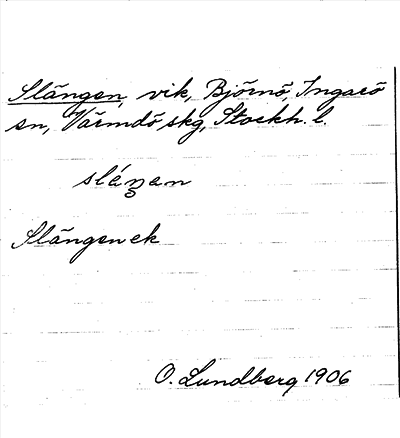 Slängen, vik, Björnö, Ingarö
sn, Värmdö skg, Stockh. l.
Slängen ek
O. Lundberg 1906